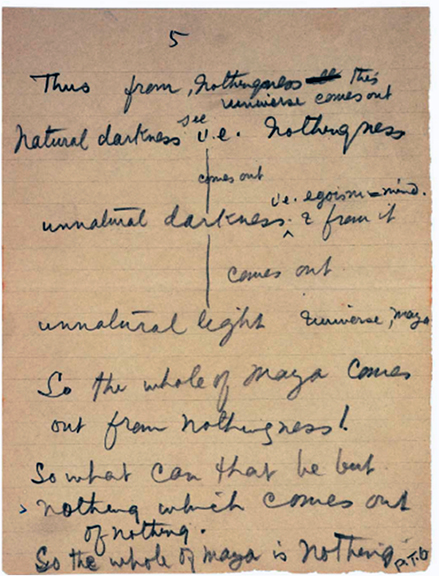 5
Thus from, Nothingness this
universe comes out
see
Natural darkness i.e. Nothingness
comes out
i.e. egoism = mind.
unnatural darkness. & from it
comes out
unnatural light universe, Maya
So the whole of Maya comes
out from Nothingness!
So what can that be but
nothing which comes out
of nothing.
So the whole of Maya is Nothing
P.T.O